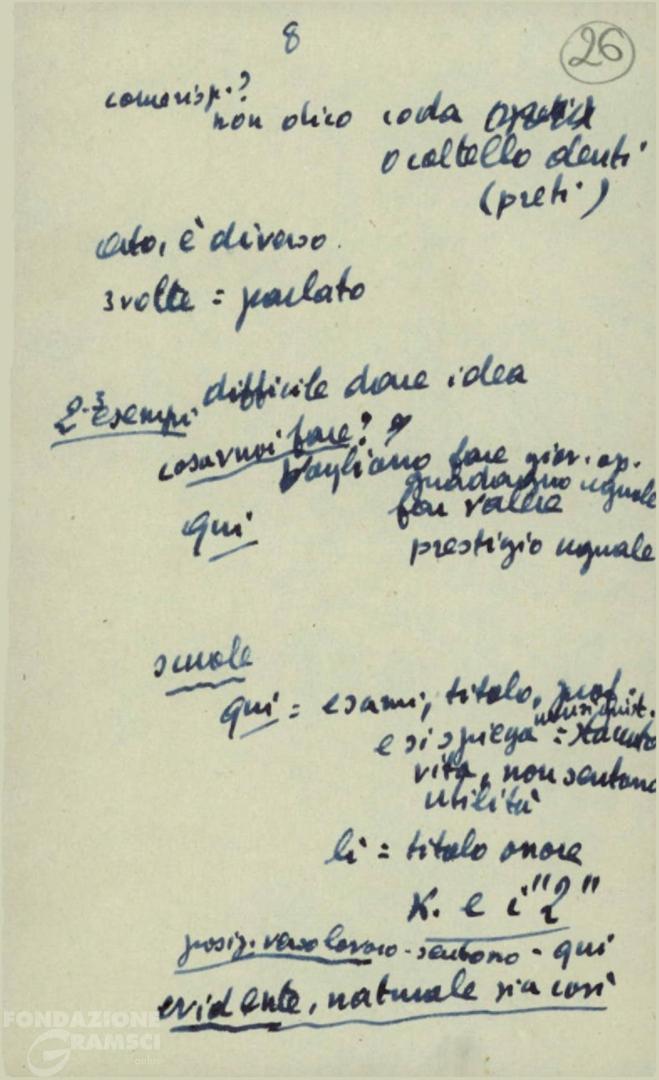 8
26
come risp.?
non dico coda
o coltello denti
(preti)
certo, è diverso.
3 volte = parlato
difficile dare idea
2-3 esempi
cosa vuoi fare?
Vogliono fare gior. op.
guadagno uguale
far valere
qui
prestigio uguale
scuole
qui = esami, titolo, prof.
e si spiega =
vita, non sentono
utilità
li = titolo onore
K. e i "2"
posiz. verso lavoro - sentono - qui
evidente, naturale sia così
FONDAZIONE
GRAMSCI